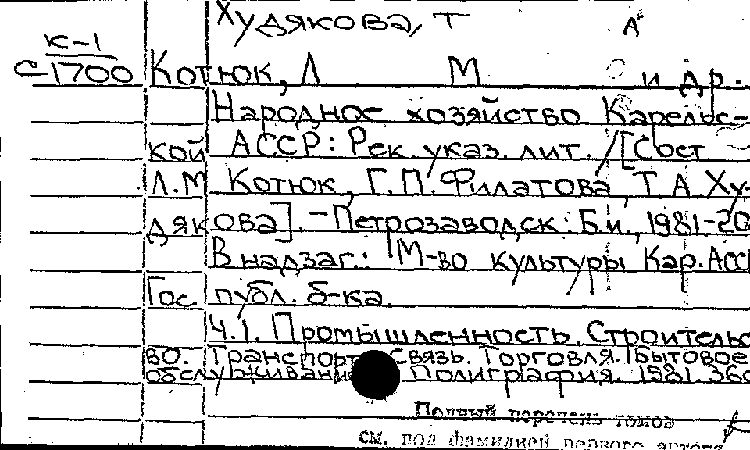 Худякова, Т А
К-1
С-1700 Котюк, Л М и др.
Народное хозяйство Карельс-
кой АССР: Рек. указ. лит. / [Сост
Л.М Котюк, Г.П. Филатова, Т А Ху-
дякова]. - Петрозаводск: Б.и., 1981-20
В надзаг.: М-во культуры Кар. АССР
Гос. публ. б-ка.
Ч.1. Промышленность. Строительс
во. Транспорт. Связь. Торговля. Бытовое
обслуживание. Полиграфия. 1981. 36с
Полный перечень томов
см. под фамилией первого автора